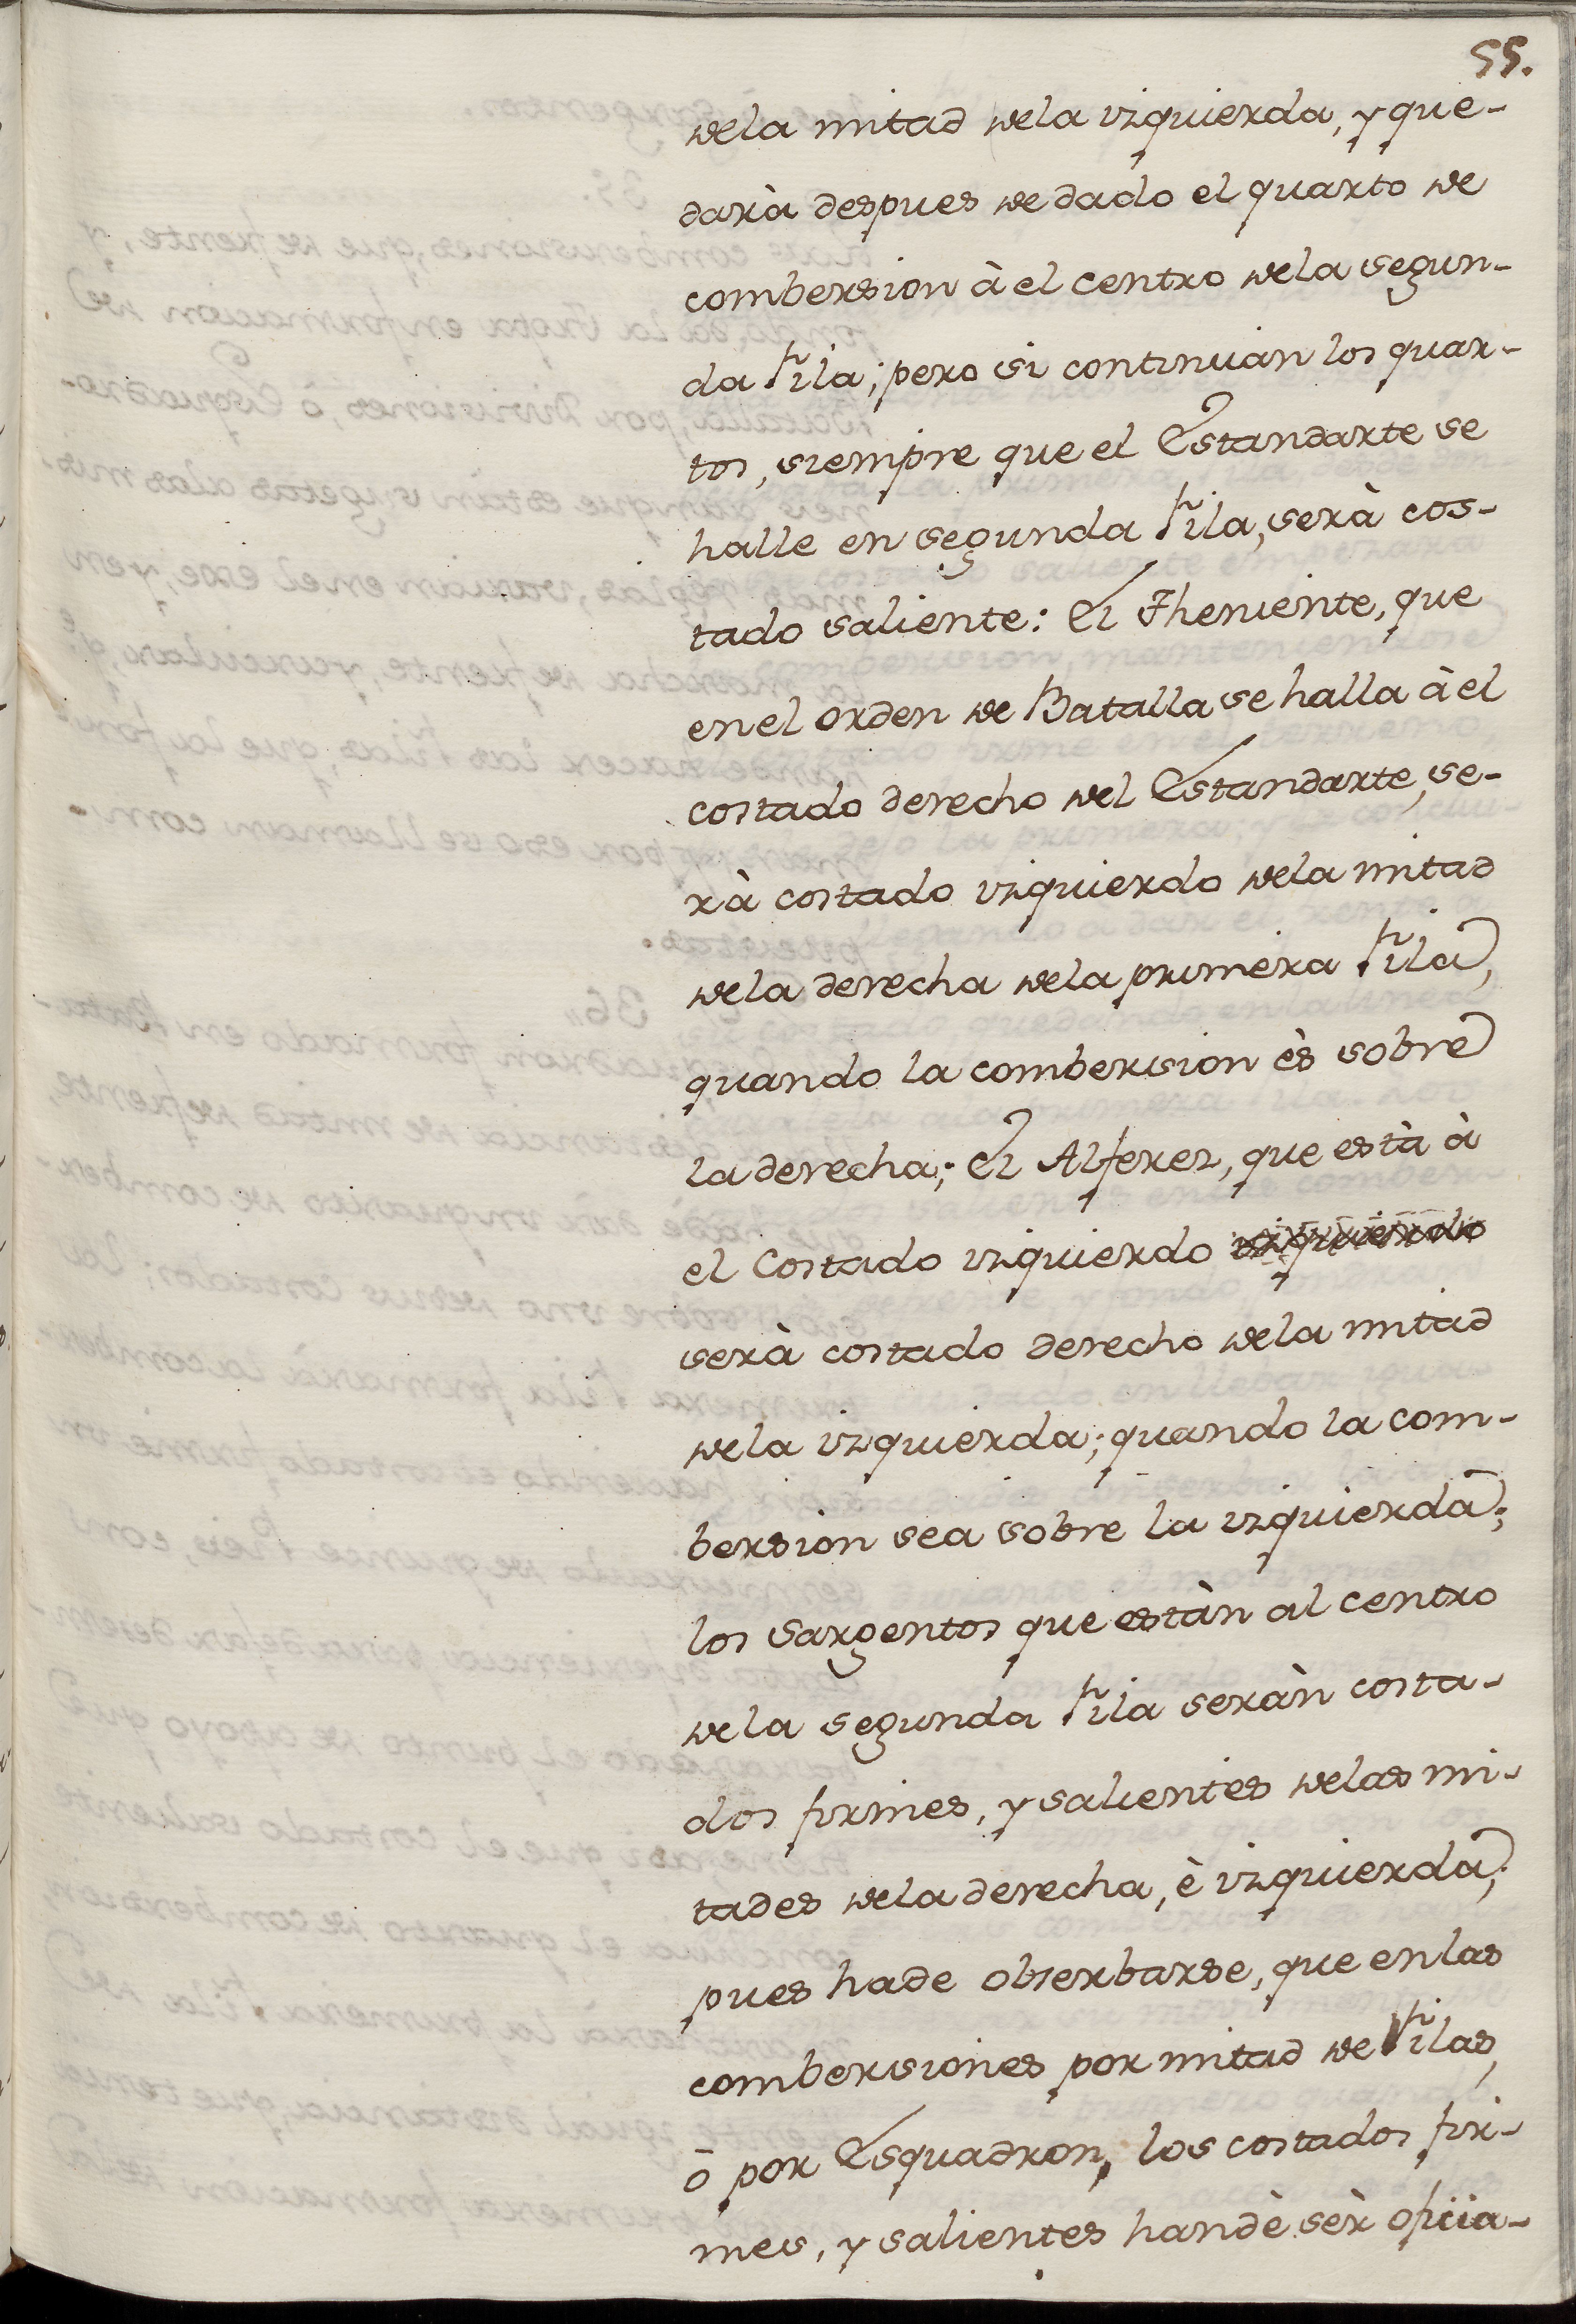 55.
dela mitad dela izquierda, y que-
darà despues de dado el quarto de
combersion à el centro dela segun-
da fila; pero si continuàn los quar-
tos, siempre que el Estandarte se
halle en segunda fila, serà cos-
tado saliente: El Theniente, que
en el orden de Batalla se halla à el
costado derecho del Estandarte, se-
rà costado izquierdo dela mitad
dela derecha dela primera fila,
quando la combersion ès sobre
la derecha; El Alferez, que està à
el Costado izquierdo izquierdo
serà costado derecho dela mitad
dela izquierda; quando la com-
bersion sea sobre la izquierda;
los sargentos que estàn al centro
dela segunda fila seràn costa-
dos firmes, y salientes delas mi-
tades dela derecha, è izquierda;
pues hade obserbarse, que en las
combersiones por mitad de filas,
ò por Esquadron, los costados fir-
mes, y salientes handè sèr oficia-